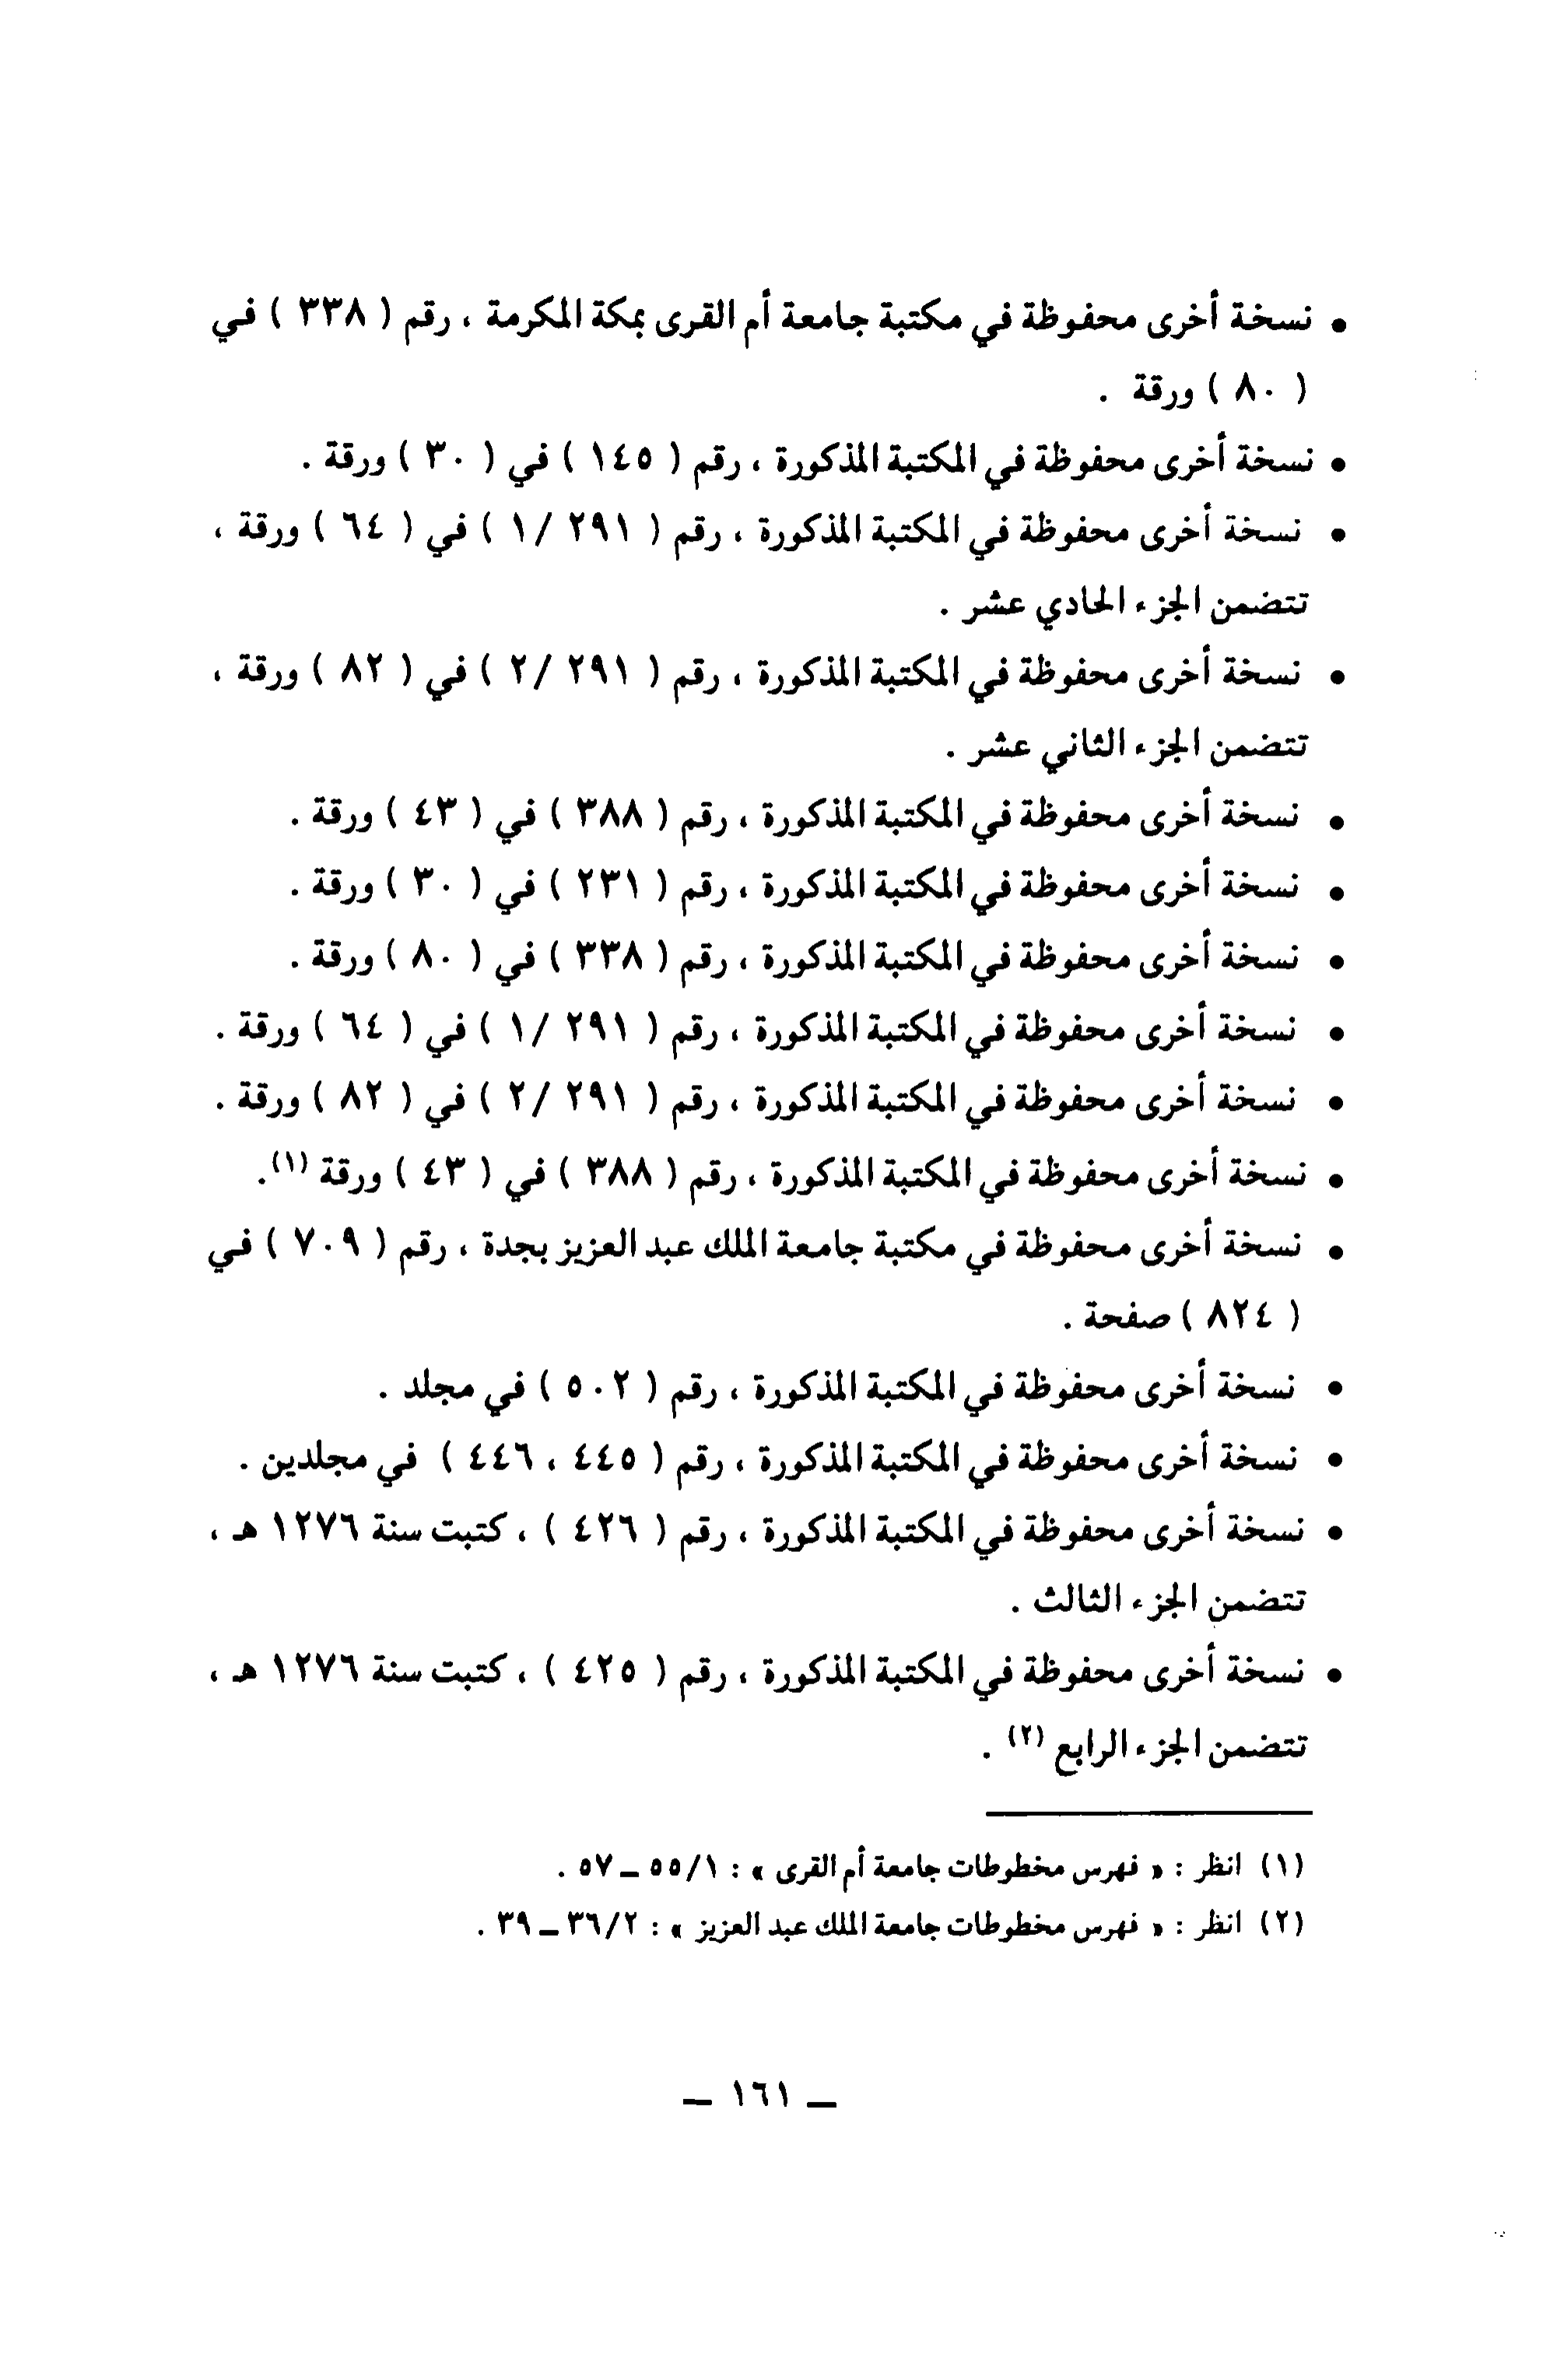 • نسخة أخرى محفوظة في مكتبة جامعة أم القرى بمكة المكرمة ، رقم ( ٣٣٨ ) في
( ٨٠ ) ورقة .
• نسخة أخرى محفوظة في المكتبة المذكورة ، رقم ( ١٤٥ ) في ( ٣٠ ) ورقة .
• نسخة أخرى محفوظة في المكتبة المذكورة ، رقم ( ٢٩١ /١ ) في ( ٦٤ ) ورقة ،
تتضمن الجزء الحادي عشر .
• نسخة أخرى محفوظة في المكتبة المذكورة ، رقم ( ٢٩١ /٢ ) في ( ٨٢ ) ورقة ،
تتضمن الجزء الثاني عشر .
• نسخة أخرى محفوظة في المكتبة المذكورة ، رقم ( ٣٨٨ ) في ( ٤٣ ) ورقة .
• نسخة أخرى محفوظة في المكتبة المذكورة ، رقم ( ٢٣١ ) في ( ٣٠ ) ورقة .
• نسخة أخرى محفوظة في المكتبة المذكورة ، رقم ( ٣٣٨ ) في ( ٨٠ ) ورقة .
• نسخة أخرى محفوظة في المكتبة المذكورة ، رقم ( ٢٩١ /١ ) في ( ٦٤ ) ورقة .
• نسخة أخرى محفوظة في المكتبة المذكورة ، رقم ( ٢٩١ /٢ ) في ( ٨٢ ) ورقة .
• نسخة أخرى محفوظة في المكتبة المذكورة ، رقم ( ٣٨٨ ) في ( ٤٣ ) ورقة (١).
• نسخة أخرى محفوظة في مكتبة جامعة الملك عبد العزيز بجدة ، رقم ( ٧٠٩ ) في
( ٨٢٤ ) صفحة .
• نسخة أخرى محفوظة في المكتبة المذكورة ، رقم ( ٥٠٢ ) في مجلد .
• نسخة أخرى محفوظة في المكتبة المذكورة ، رقم ( ٤٤٥ ، ٤٤٦ ) في مجلدين .
• نسخة أخرى محفوظة في المكتبة المذكورة ، رقم ( ٤٢٦ ) ، كتبت سنة ١٢٧٦ هـ ،
تتضمن الجزء الثالث .
• نسخة أخرى محفوظة في المكتبة المذكورة ، رقم ( ٤٢٥ ) ، كتبت سنة ١٢٧٦ هـ ،
تتضمن الجزء الرابع (٢) .
(١) انظر : « فهرس مخطوطات جامعة أم القرى » : ٥٥/١ ــ ٥٧ .
(٢) انظر : « فهرس مخطوطات جامعة الملك عبد العزيز » : ٣٦/٢ ــ ٣٩ .
ــ ١٦١ ــ